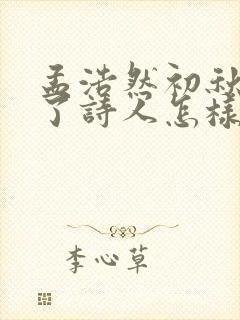 孟浩然初秋
了詩人怎樣
李心草